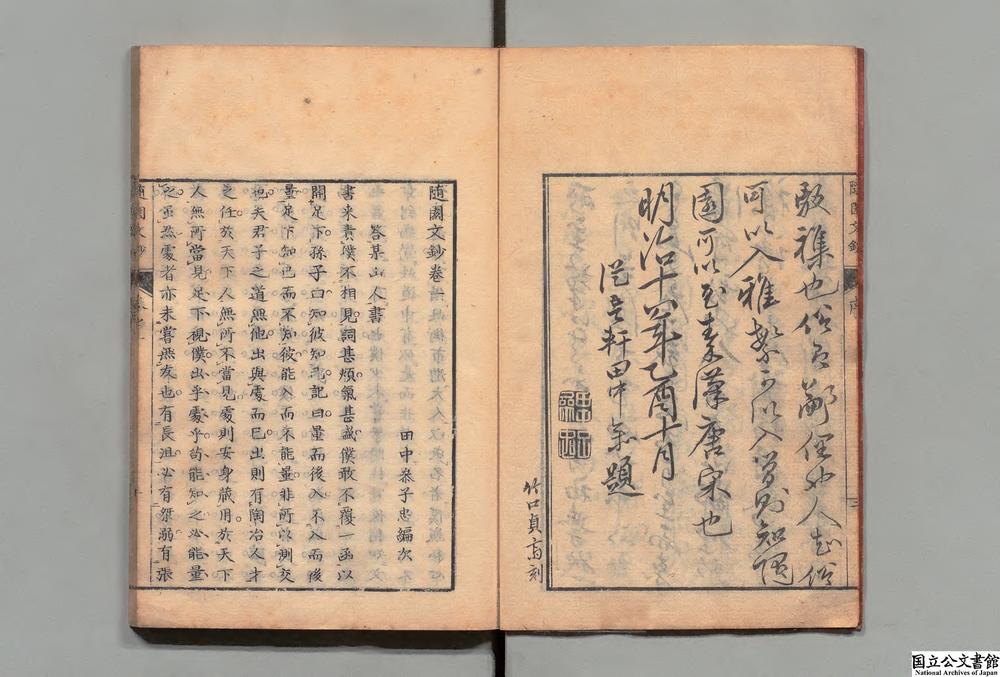 可以入雅 繁可以入簡 則知隨
園可以至秦漢唐宋也
明治十八年乙酉十月
田中 題
竹口貞斎刻
隨園文鈔 序
隨園文鈔卷一
答某山人書
田中 子忠編次
書来責僕不相見詞甚煩氣甚盛僕敢不覆一函以
開足下孫子曰知彼知己記曰量而後入不入而後
量足下知己而不知彼能入而不能量非所以測交
也夫君子之道無他出與處而已出則有陶冶人才
之任於天下人無所不當見處則安身藏用於天下
人無所當見足下視僕出乎處乎苟能知之必能量
之虽然處者亦未嘗無友也有長沮必有桀溺有張
国立公文書館
National Archives of Japan